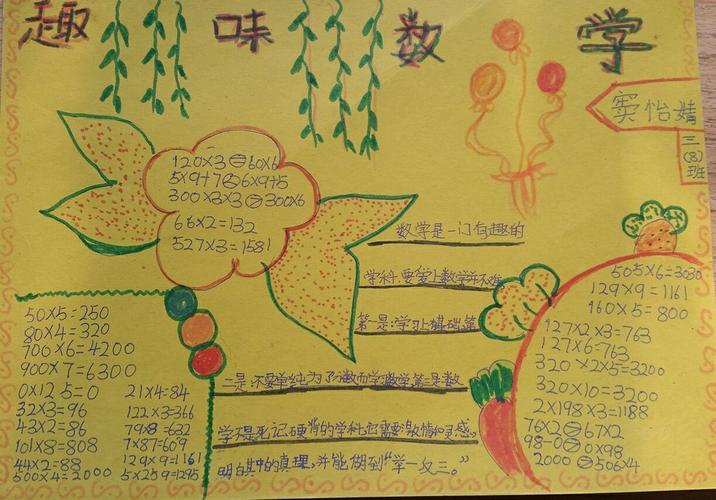 趣味数学
窦怡婧
三(8)班
120×3=60×6
5×9+7<6×9+5
300×3×3>300×6
66×2=132
527×3=1581
数学是一门有趣的
学科,要爱上数学并不难
第一是:学习上基础
二是:不要单纯为了
学不是死记硬背的学科,它需要激情和灵感,
明白其中的真理,并能做到“学一反三。”
50×5=250
80×4=320
700×6=4200
900×7=6300
0×125=0
32×3=96
43×2=86
101×8=808
44×2=88
500×4=2000
21×4=84
122×3=366
79×8=632
7×87=609
129×9=1161
5×259=1295
505×6=3030
129×9=1161
160×5=800
127×2×3=763
127×6=763
320×2×5=3200
320×10=3200
2×198×3=1188
76×2>67×2
98-0>0×98
2000 506×4